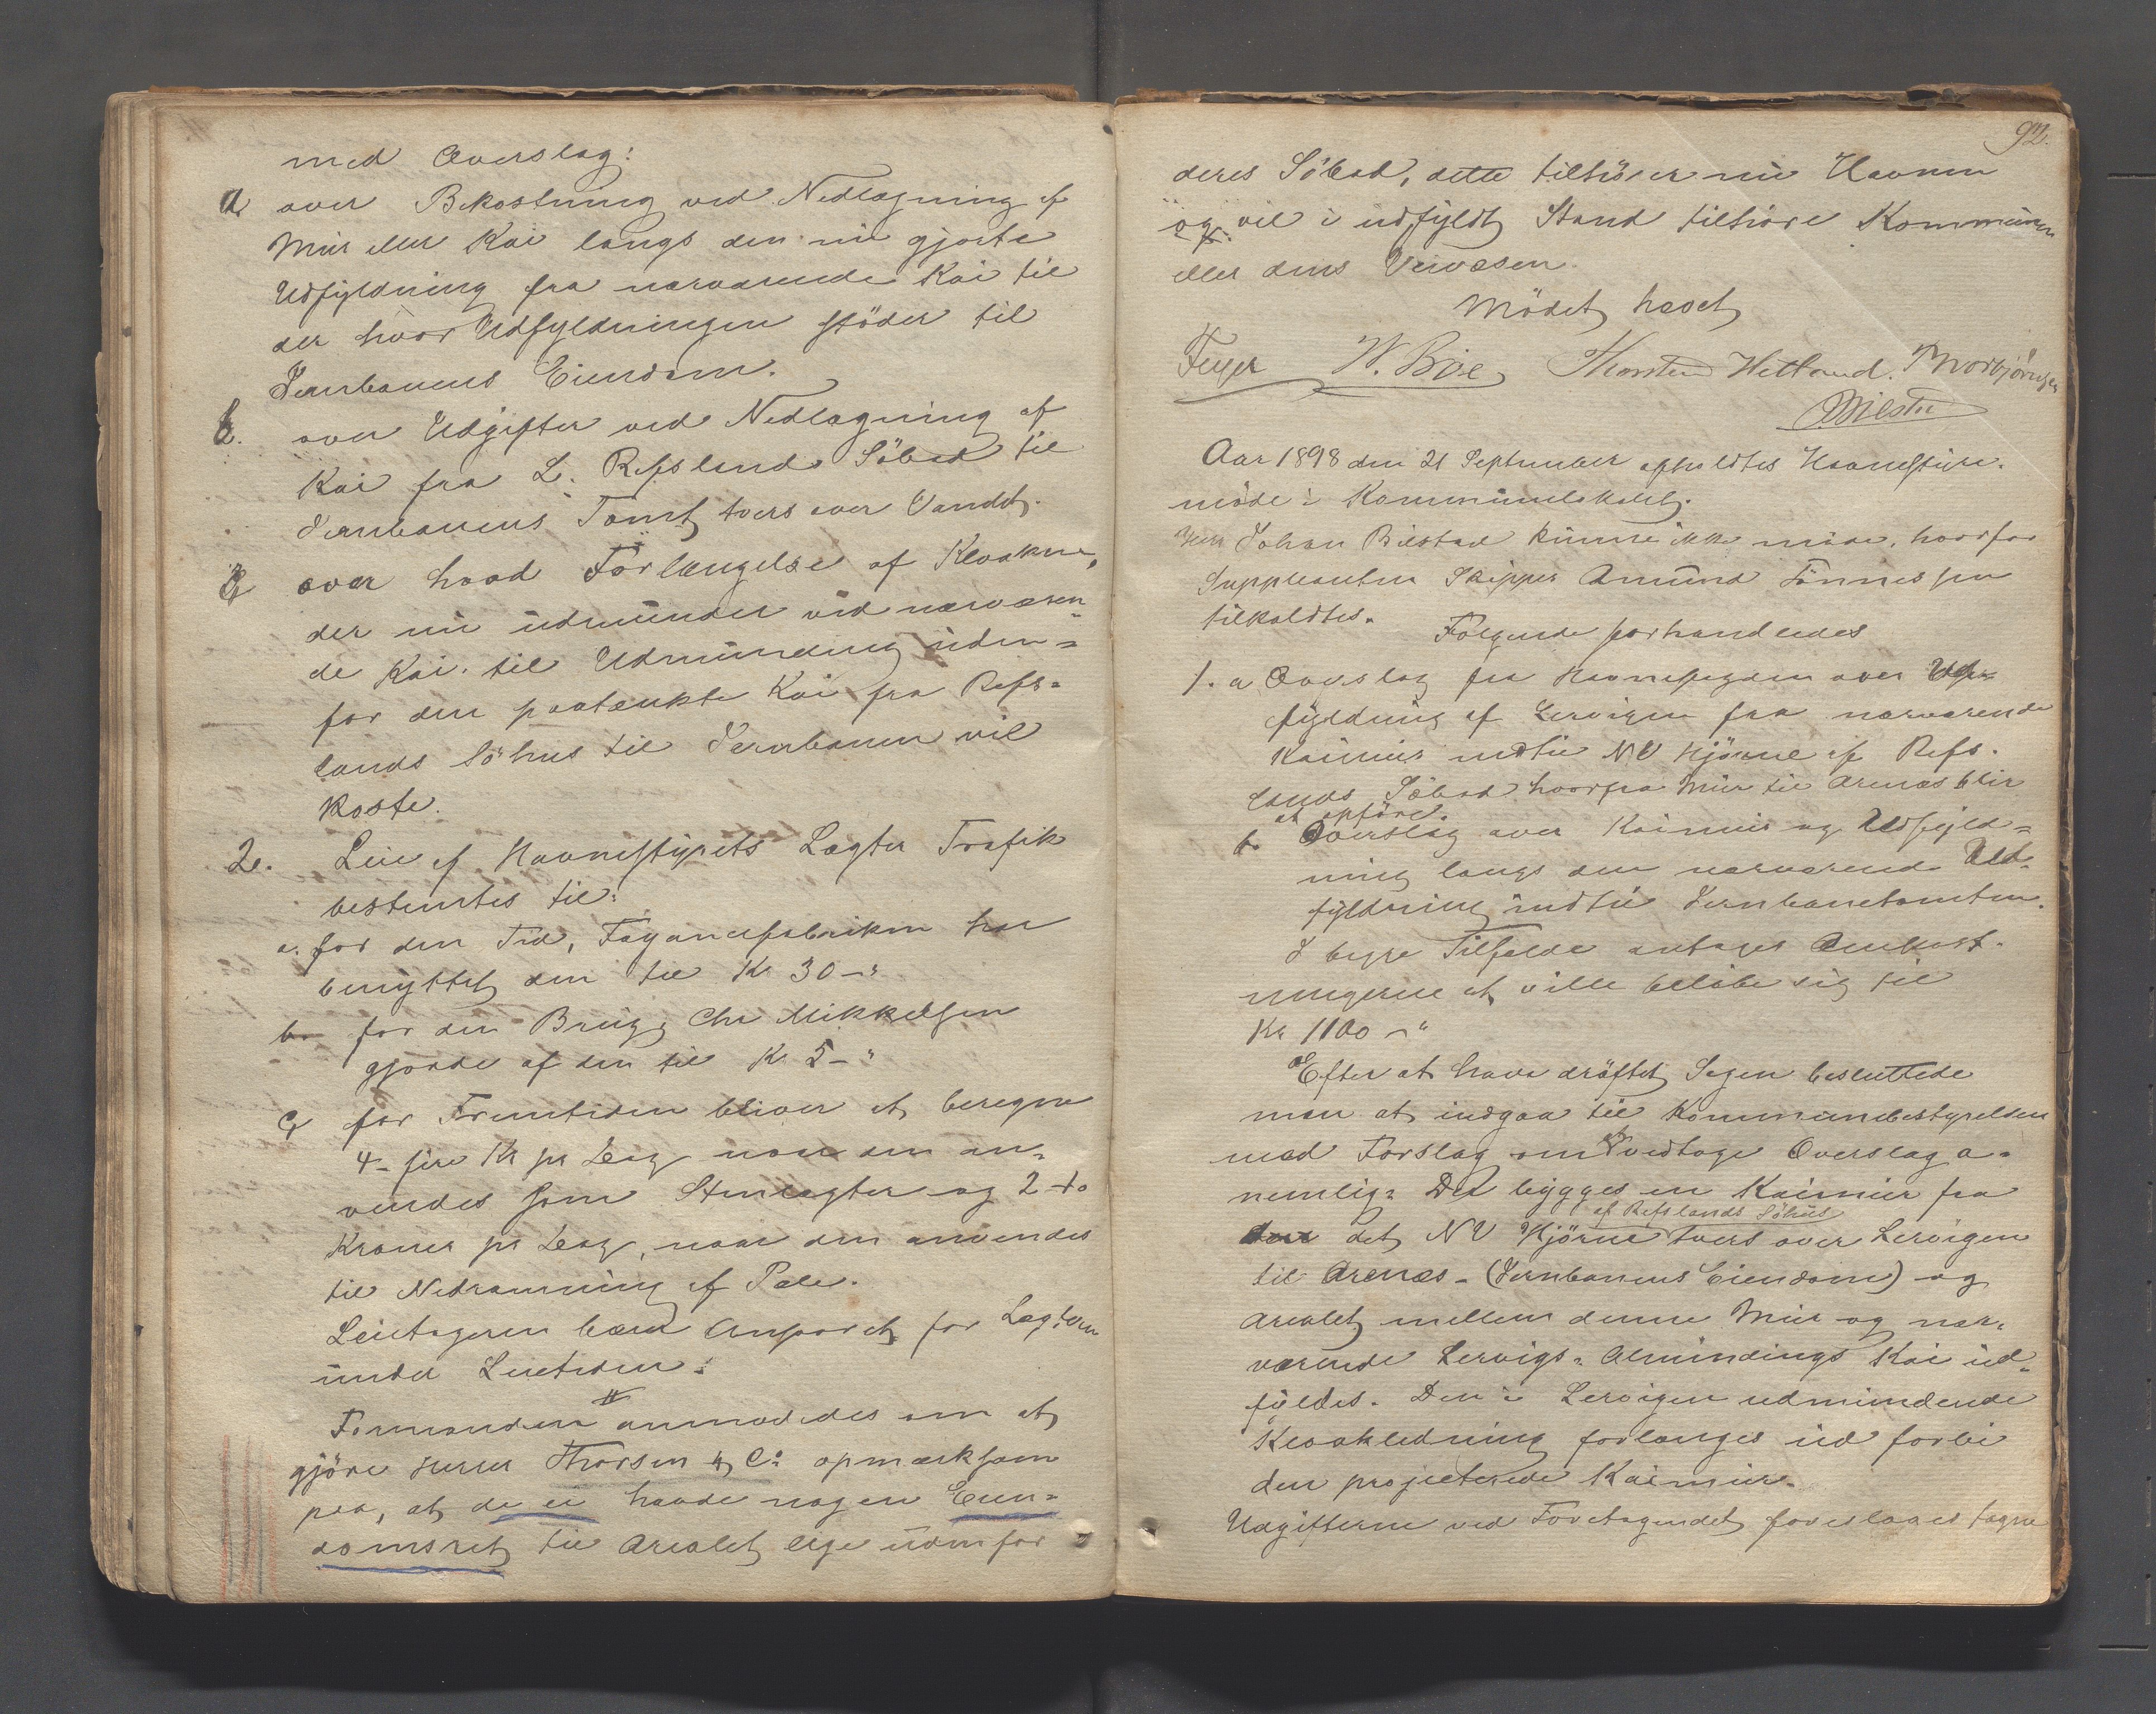 med Overslag:
a. over Bekostning ved Nedlægning af
Mür eller Kai langs den nü gjorte
Udfyldning fra nærværende Kai til
der hvor Udfyldningen støder til
Jernbanens Eiendom.
b. over Udgifter ved Nedlægning af
Kai fra L. Refslands Söbod til
Jernbanens Tomt tvers over Vandet.
c over hvad Forlængelse af Kloaken,
der nü üdmünder ved nærværen
de Kai til Udmünding üden=
for den paatænkte Kai fra Refs-
lands Söhus til Jernbanen vil
koste.
2. Leie af Havnestyrets Lægter Trafik
bestemtes til:
a. for den Tid, Fayancefabriken har
benyttet den til Kr 30-"
b. for den Brüg, Chr Mikkelsen
gjorde af den til Kr 5-"
c, for Fremtiden bliver at beregne
4- fire Kr pr Dag naar den an-
vendes som Stenlægter og 2 to
Kroner pr Dag, naar den anvendes
til Nedramming af Pæle.
Leietageren bærer Ansvaret for Lægteren
ünder Leietiden.
Formanden anmodedes om at
gjöre Herrer Thorsen & Co opmærksom
paa, at de ei havde nogen Eien=
domsret til Arealet lige üdenfor
92.
deres Söbod, dette tilhörer nü Havnen
og vil i udfyldt Stand tilhöre Kommünen
eller dens Veivæsen.
Mödet hævet
Feyer W. Böe Thorsten Hetland. Thorbjörnsen
Bilstad
Aar 1898 den 21 September afholdtes Havnestyre-
möde i Kommünelokalet.
Herr Johan Bilstad künne ikke möde, hvorfor
Suppleanten Skipper Amünd Tönnessen
tilkaldtes.
Følgende forhandledes
1. a Overslag fra Havnefogden over Ud-
fyldning af Lervigen fra nærværende
Kaimür indtil NV Hjörne af Refs-
lands Söbod hvorfra Mür til Arenæs blir
at opföre.
b. Overslag over Kaimür og Udfyld=
ning langs den nærværende Ud-
fyldning indtil Jernbanetomten.
I begge Tilfælde antages Omkost-
ningerne at ville belöbe sig til
Kr 1100-"
Efter at have dröftet Sagen besluttede
man at indgaa til Kommunebestyrelsen
med Forslag om at vedtage Overslag a.
nemlig: Der bygges en Kaimür fra
det NV Hjörne af Refslands Söhüs tvers over Lervigen
til Arenæs - (Jernbanens Eiendom) og
Arealet mellem denne Mür og nær-
værende Lervigs- Almindings Kai üd-
fyldes. Den i Lervigen udmündende
Kloakledning forlænges üd forbi
den projecterede Kaimür.
Udgifterne ved Foretagendet foreslaaes tagne